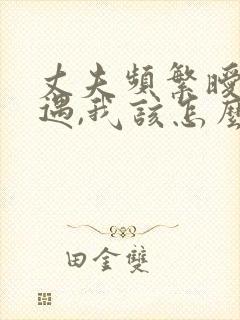 丈夫頻繁曖
遇,我該怎麼
田金雙